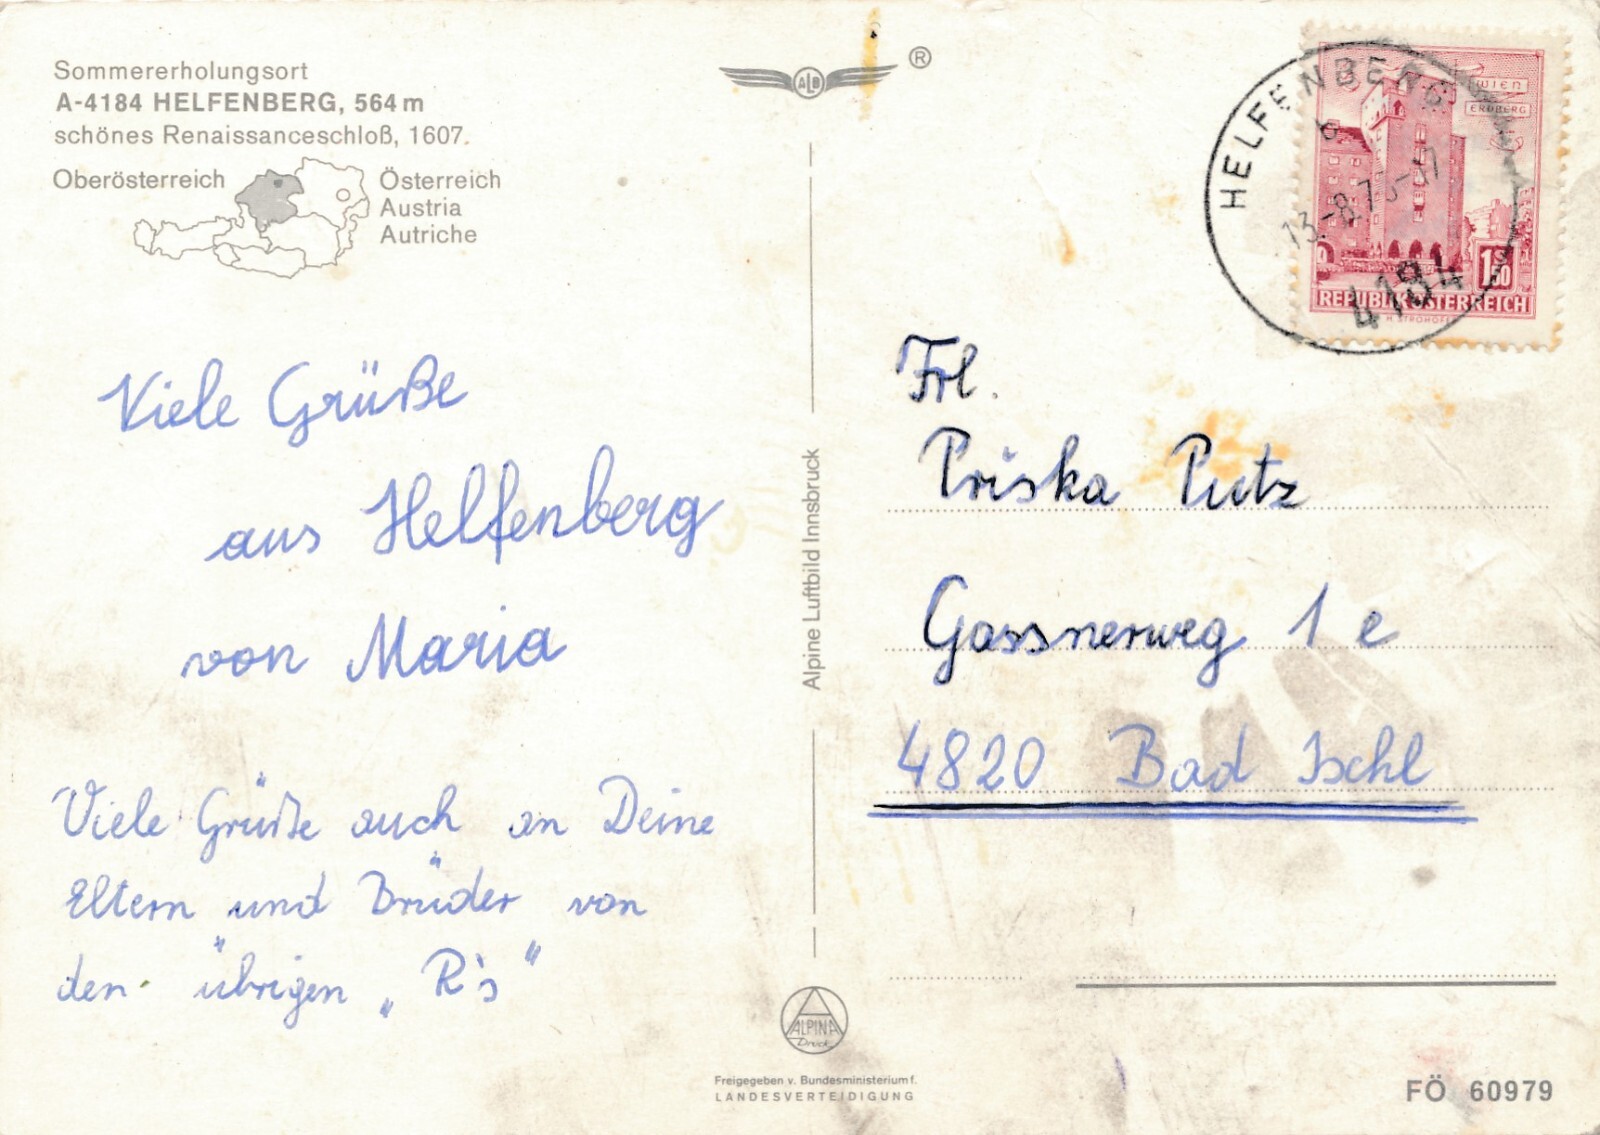 Sommererholungsort
A-4184 HELFENBERG, 564 m
schönes Renaissanceschloß, 1607.
Oberösterreich
Österreich
Austria
Autriche
ALB
®
HELFENBERG
4184
WIEN
ERDBERG
1S50
REPUBLIK ÖSTERREICH
Viele Grüße
aus Helfenberg
von Maria
Viele Grüße auch an Deine
Eltern und Brüder von
den übrigen „R's"
Alpine Luftbild Innsbruck
Frl.
Priska Putz
Gassnerweg 1 e
4820 Bad Ischl
ALPINA
Druck
Freigegeben v. Bundesministerium f.
LANDESVERTEIDIGUNG
FÖ 60979